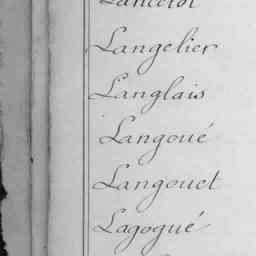 Lancelot
Langelier
Langlais
Langoué
Langouet
Lagogué